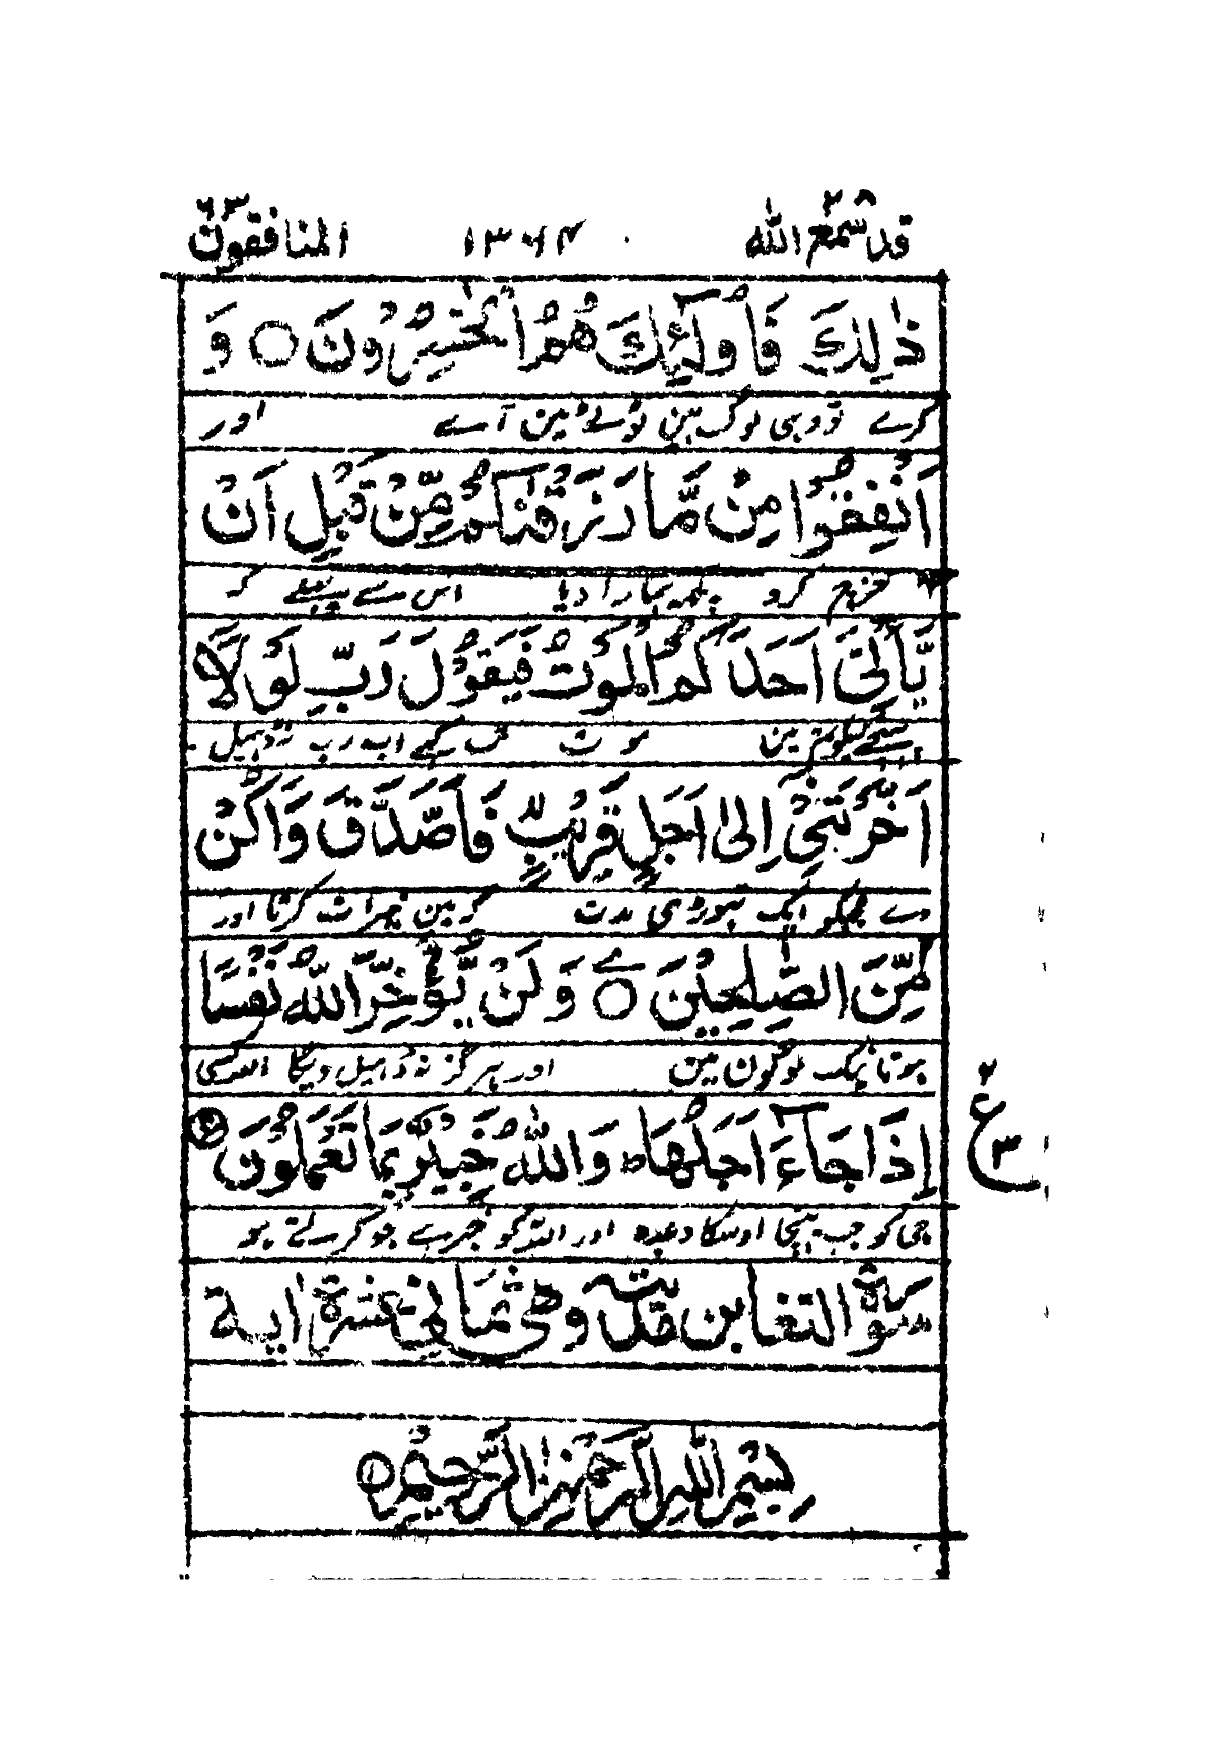 قد سمع الله ٢٨ المنافقون ٦٣
ذٰلِكَ فَاُولٰٓئِكَ هُمُ الْخٰسِرُوْنَ ۝ وَ
کرے تو وہی لوگ ہین ٹوٹے مین آے اور
اَنْفِقُوْا مِنْ مَّا رَزَقْنٰكُمْ مِّنْ قَبْلِ اَنْ
خرچ کرو ہمارا دیا اس سے پہلے کہ
يَّاْتِيَ اَحَدَكُمُ الْمَوْتُ فَيَقُوْلَ رَبِّ لَوْ لَآ
مین موت تب کہے اے رب نہ ڈہیل
اَخَّرْتَنِيْٓ اِلٰٓى اَجَلٍ قَرِيْبٍ فَاَصَّدَّقَ وَاَكُنْ
دے مجھکو ایک تہوڑی مدت کہ مین خیرات کرتا اور
مِّنَ الصّٰلِحِيْنَ ۝ وَلَنْ يُّؤَخِّرَ اللّٰهُ نَفْسًا
ہوتا نیک لوگون مین اور ہرگز نہ ڈہیل دیگا اللہ کسی
اِذَا جَآءَ اَجَلُهَا ؕ وَاللّٰهُ خَبِيْرٌۢ بِمَا تَعْمَلُوْنَ ۝
ع ٢
جی کو جب پہنچا اوسکا وعدہ اور اللہ کو خبر ہے جو کرتے ہو
سورة التغابن مدنية وهي ثماني عشرة اٰية
بِسْمِ اللّٰهِ الرَّحْمٰنِ الرَّحِيْمِ ۝